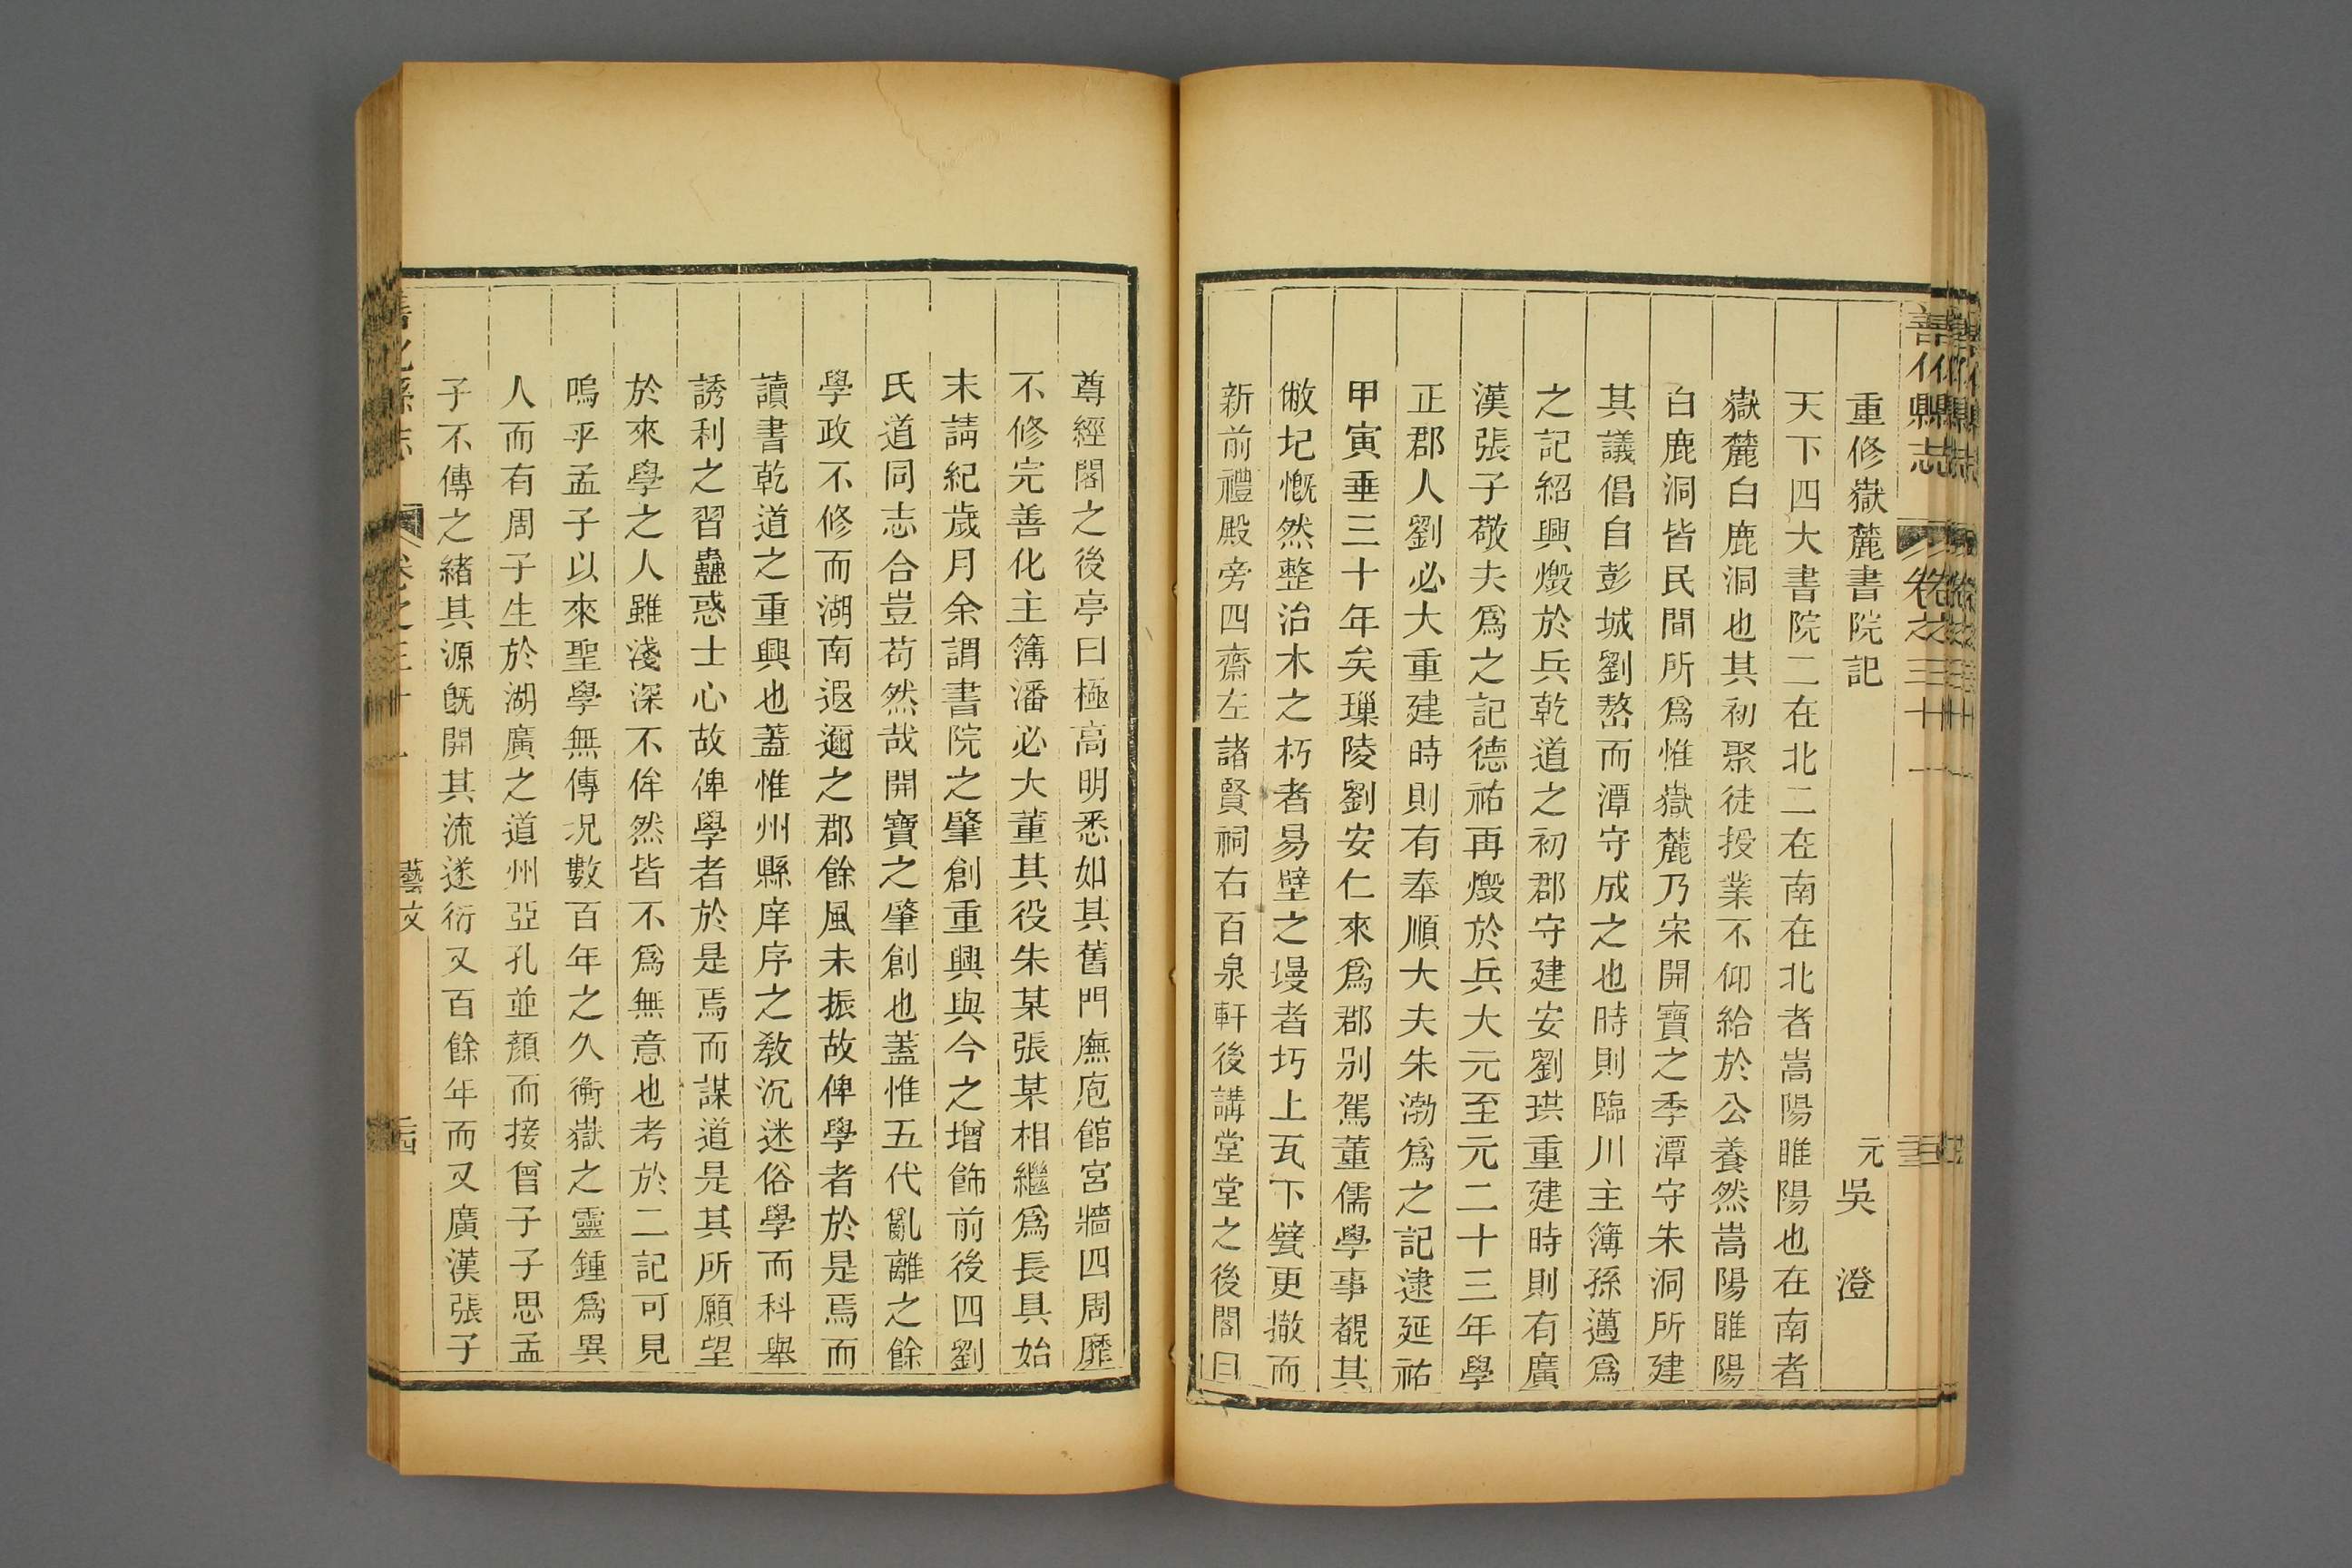 善化縣志 卷之三十一
重修嶽麓書院記 元 吳 澄
天下四大書院二在北二在南在北者嵩陽睢陽也在南者
嶽麓白鹿洞也其初聚徒授業不仰給於公養然嵩陽睢陽
白鹿洞皆民間所爲惟嶽麓乃宋開寶之季潭守朱洞所建
其議倡自彭城劉嶅而潭守成之也時則臨川主簿孫邁爲
之記紹興燬於兵乾道之初郡守建安劉珙重建時則有廣
漢張子敬夫爲之記德祐再燬於兵大元至元二十三年學
正郡人劉必大重建時則有奉順大夫朱渤爲之記逮延祐
甲寅垂三十年矣㻿陵劉安仁來爲郡别駕董儒學事覩其
敝圮慨然整治木之朽者易壁之墁者圬上瓦下甓更撤而
新前禮殿旁四齋左諸賢祠右百泉軒後講堂堂之後閣曰
尊經閣之後亭曰極高明悉如其舊門廡庖館宮牆四周靡
不修完善化主簿潘必大董其役朱某張某相繼爲長具始
末請紀歲月余謂書院之肇創重興與今之增飾前後四劉
氏道同志合豈苟然哉開寶之肇創也蓋惟五代亂離之餘
學政不修而湖南遐邇之郡餘風未振故俾學者於是焉而
讀書乾道之重興也蓋惟州縣庠序之敎沉迷俗學而科舉
誘利之習蠱惑士心故俾學者於是焉而謀道是其所願望
於來學之人雖淺深不侔然皆不爲無意也考於二記可見
嗚乎孟子以來聖學無傳况數百年之久衡嶽之靈鍾爲異
人而有周子生於湖廣之道州亞孔並顏而接曾子子思孟
子不傳之緒其源旣開其流遂衍又百餘年而又廣漢張子
善化縣志 卷之三十一 藝文